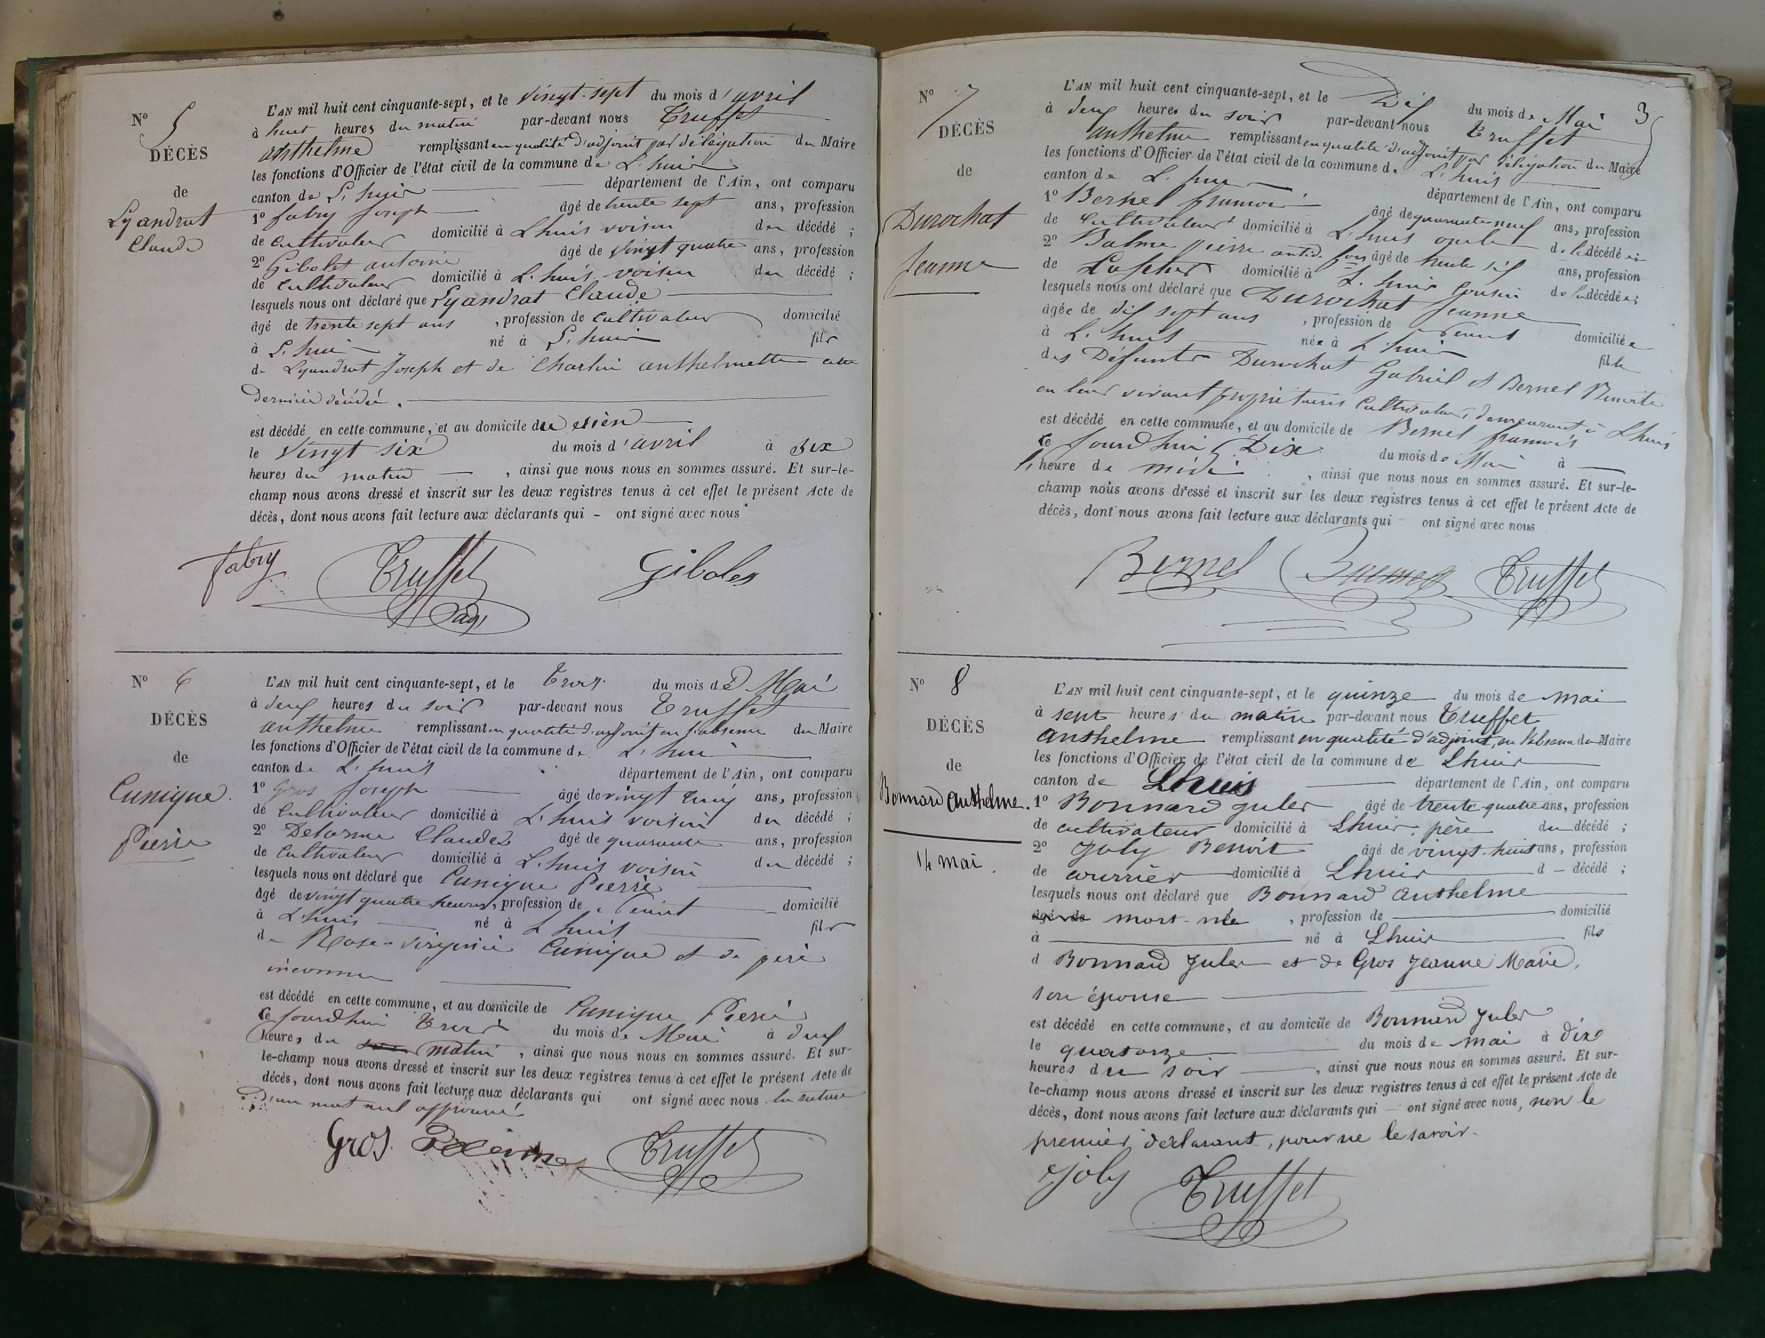 N° 5
DÉCÈS
de
Lyandrat
Claude
L'AN mil huit cent cinquante-sept, et le vingt-sept du mois d'avril
à huit heures du matin par-devant nous Truffet
anthelme remplissant en qualité d'adjoint par délégation du Maire
les fonctions d'Officier de l'état civil de la commune de L'huis
canton de L'huis département de l'Ain, ont comparu
1° fabry Joseph âgé de trente sept ans, profession
de cultivateur domicilié à Lhuis voisin du décédé ;
2° Gibolet antoine âgé de vingt quatre ans, profession
de cultivateur domicilié à L'huis voisin du décédé ;
lesquels nous ont déclaré que Lyandrat Claude
âgé de trente sept ans , profession de cultivateur domicilié
à L'huis né à L'huis fils
de Lyandrat Joseph et de Charlin anthelmette cette
dernière décédée.
est décédé en cette commune, et au domicile du sien
le vingt six du mois d'avril à six
heures du matin , ainsi que nous nous en sommes assuré. Et sur-le-
champ nous avons dressé et inscrit sur les deux registres tenus à cet effet le présent Acte de
décès, dont nous avons fait lecture aux déclarants qui – ont signé avec nous
fabry Truffet Gibolet
adj
N° 6
DÉCÈS
de
Cunique
Pierre
L'AN mil huit cent cinquante-sept, et le trois du mois de Mai
à deux heures du soir par-devant nous Truffet
anthelme remplissant en qualité d'adjoint en l'absence du Maire
les fonctions d'Officier de l'état civil de la commune de L'huis
canton de L'huis département de l'Ain, ont comparu
1° Gros Joseph âgé de vingt cinq ans, profession
de Cultivateur domicilié à L'huis voisin du décédé ;
2° Delorme Claude âgé de quarante ans, profession
de Cultivateur domicilié à L'huis voisin du décédé ;
lesquels nous ont déclaré que Cunique Pierre
âgé de vingt quatre heures, profession de domicilié
à L'huis né à L'huis fils
de Rose-virginie Cunique et de père
inconnu
est décédé en cette commune, et au domicile de Cunique Pierre
ce jourd'hui trois du mois de Mai à deux
heures du matin , ainsi que nous nous en sommes assuré. Et sur-
le-champ nous avons dressé et inscrit sur les deux registres tenus à cet effet le présent Acte de
décès, dont nous avons fait lecture aux déclarants qui ont signé avec nous la rature
d'un mot nul approuvé
Gros Delorme Truffet
3
N° 7
DÉCÈS
de
Durochat
Jeanne
L'AN mil huit cent cinquante-sept, et le Dix du mois de Mai
à deux heures du soir par-devant nous Truffet
anthelme remplissant en qualité d'adjoint par délégation du Maire
les fonctions d'Officier de l'état civil de la commune de L'huis
canton de L'huis département de l'Ain, ont comparu
1° Bernel françois âgé de quarante neuf ans, profession
de Cultivateur domicilié à L'huis oncle de la décédée
2° Balme pierre âgé de trente six ans, profession
de domicilié à L'huis Cousin de la décédée ;
lesquels nous ont déclaré que Durochat Jeanne
âgée de dix sept ans , profession de domiciliée
à L'huis née à L'huis fille
des Défunts Durochat Gabriel et Bernel Benoite
en leur vivant propriétaires Cultivateurs demeurant à Lhuis
est décédé en cette commune, et au domicile de Bernel françois
ce jourd'hui Dix du mois de Mai à
heure de midi , ainsi que nous nous en sommes assuré. Et sur-le-
champ nous avons dressé et inscrit sur les deux registres tenus à cet effet le présent Acte de
décès, dont nous avons fait lecture aux déclarants qui – ont signé avec nous
Bernel Truffet
N° 8
DÉCÈS
de
Bonnard Anthelme.
14 mai.
L'AN mil huit cent cinquante-sept, et le quinze du mois de mai
à sept heures du matin par-devant nous Truffet
anthelme remplissant en qualité d'adjoint, en l'absence du Maire
les fonctions d'Officier de l'état civil de la commune de Lhuis
canton de Lhuis département de l'Ain, ont comparu
1° Bonnard Jules âgé de trente quatre ans, profession
de cultivateur domicilié à Lhuis, père du décédé ;
2° Joly Benoit âgé de vingt-huit ans, profession
de courrier domicilié à Lhuis d – décédé ;
lesquels nous ont déclaré que Bonnard Anthelme
âgé de mort-née , profession de domicilié
à né à Lhuis fils
d Bonnard Jules et de Gros Jeanne Marie,
son épouse
est décédé en cette commune, et au domicile de Bonnard Jules
le quatorze du mois de mai à dix
heures du soir , ainsi que nous nous en sommes assuré. Et sur-
le-champ nous avons dressé et inscrit sur les deux registres tenus à cet effet le présent Acte de
décès, dont nous avons fait lecture aux déclarants qui – ont signé avec nous, non le
premier déclarant, pour ne le savoir.
Joly Truffet